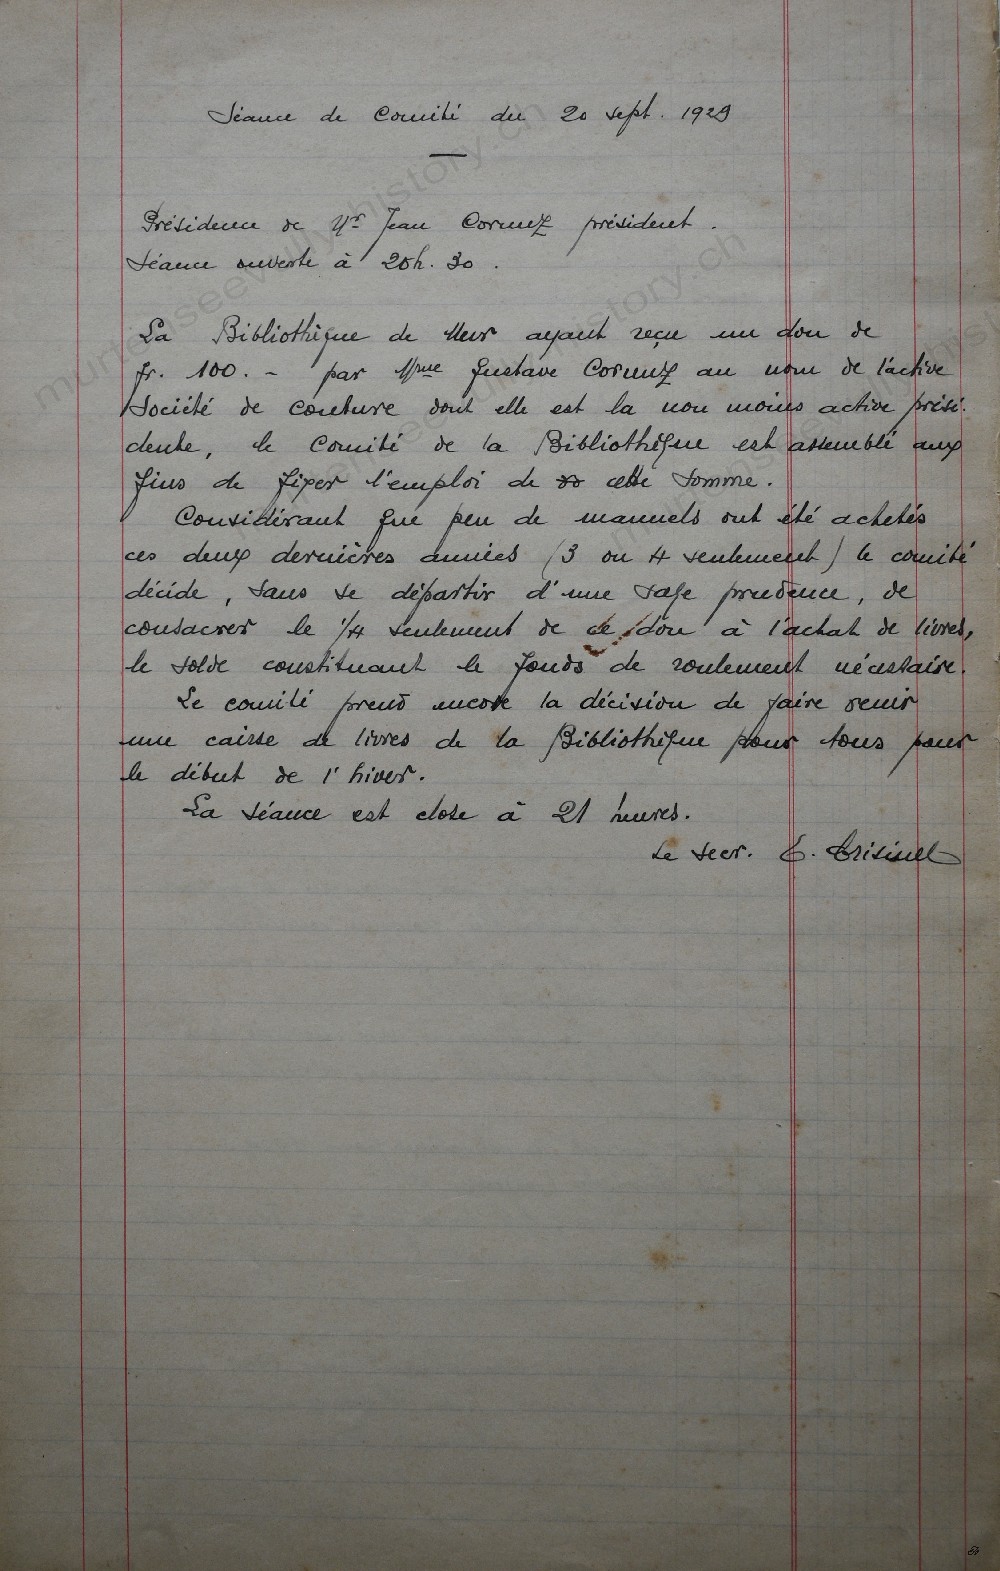 Séance de Comité du 20 sept. 1929
Présidence de Mr Jean Cornuz président.
Séance ouverte à 20h. 30.
La Bibliothèque de Mur ayant reçu un don de
fr. 100.- par Mme Gustave Cornuz au nom de l'active
Société de couture dont elle est la non moins active prési-
dente, le Comité de la Bibliothèque est assemblé aux
fins de fixer l'emploi de cette somme.
Considérant que peu de manuels ont été achetés
ces deux dernières années (3 ou 4 seulement) le comité
décide, sans se départir d'une sage prudence, de
consacrer le 1/4 seulement de ce don à l'achat de livres,
le solde constituant le fonds de roulement nécessaire.
Le comité prend encore la décision de faire venir
une caisse de livres de la Bibliothèque pour tous pour
le début de l'hiver.
La séance est close à 21 heures.
Le secr. E. Crisinel
murtenseewullyhistory.ch